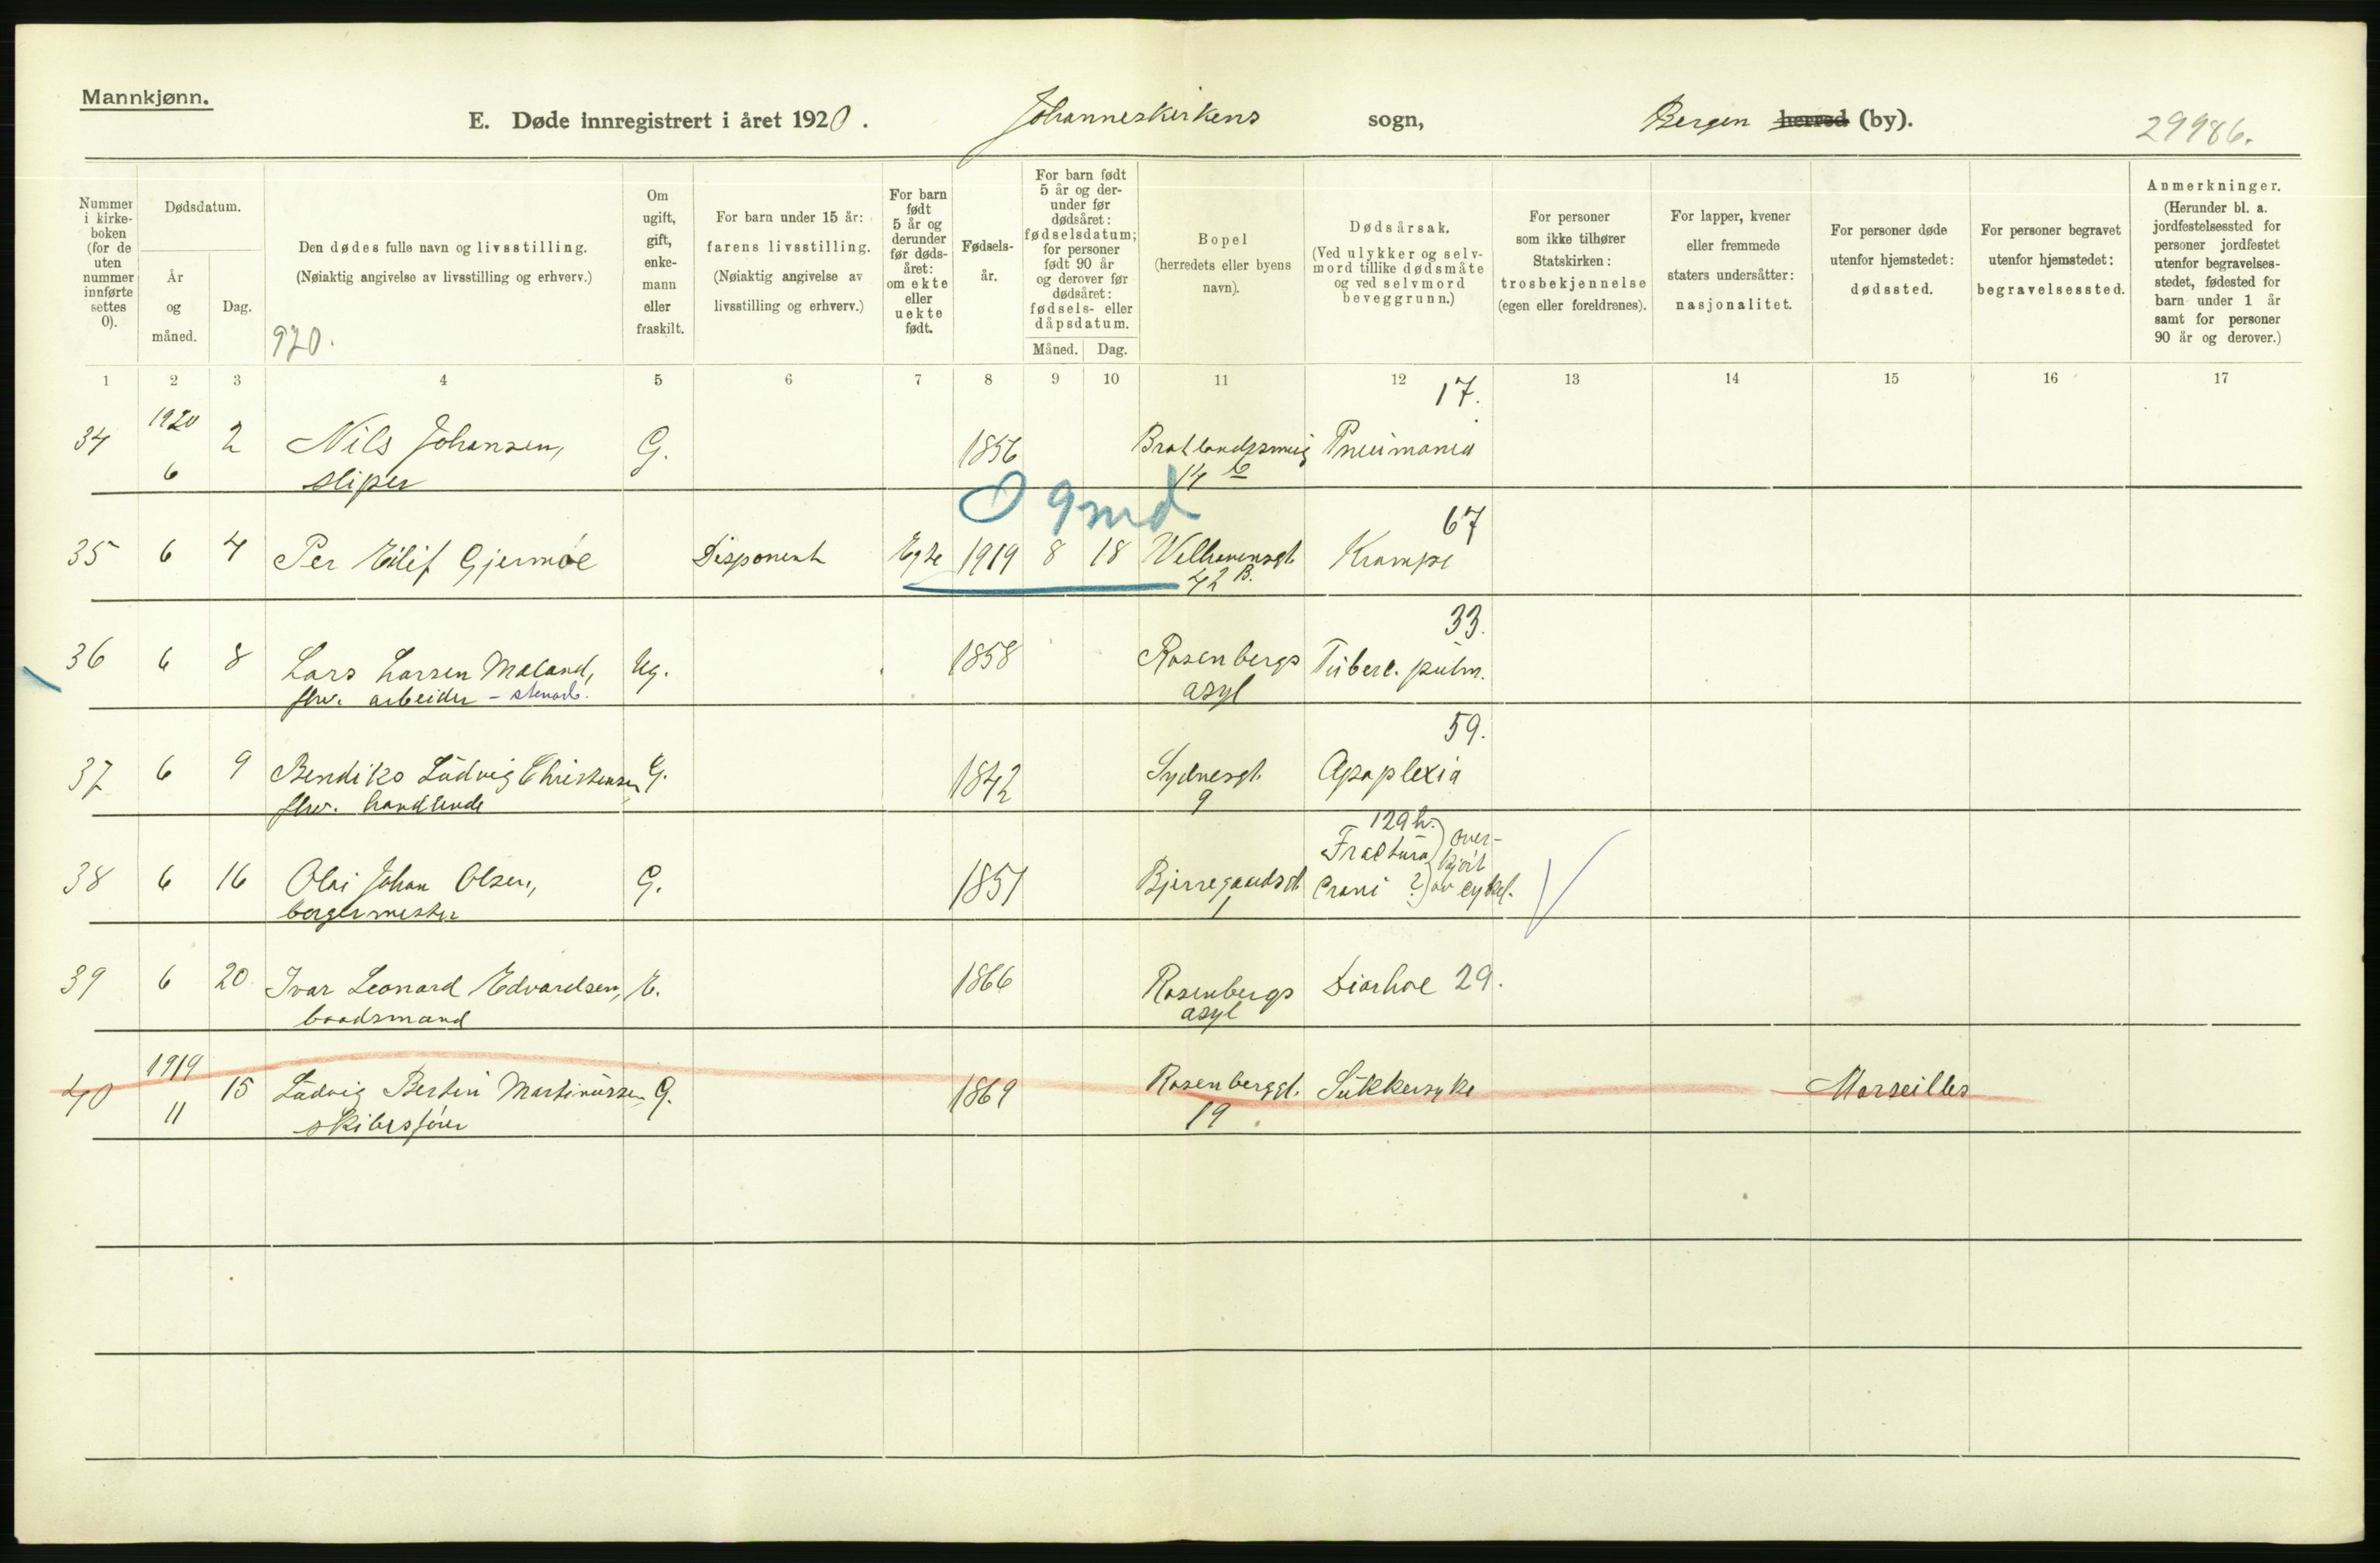 Mannkjønn.
E. Døde innregistrert i året 1920. Johanneskirkens sogn, Bergen herred (by). 29986.
Nummer i kirkeboken (for de uten nummer innførte settes 0).
Dødsdatum.
År og måned.
Dag.
Den dødes fulle navn og livsstilling.
(Nøiaktig angivelse av livsstilling og erhverv.)
920.
Om ugift, gift, enkemann eller fraskilt.
For barn under 15 år: farens livsstilling.
(Nøiaktig angivelse av livsstilling og erhverv.)
For barn født 5 år og derunder før dødsåret: om ekte eller uekte født.
Fødselsår.
For barn født 5 år og derunder før dødsåret: fødselsdatum; for personer født 90 år og derover før dødsåret: fødsels- eller dåpsdatum.
Måned. Dag.
Bopel
(herredets eller byens navn).
Dødsårsak.
(Ved ulykker og selvmord tillike dødsmåte og ved selvmord beveggrunn.)
For personer som ikke tilhører Statskirken: trosbekjennelse (egen eller foreldrenes).
For lapper, kvener eller fremmede staters undersåtter: nasjonalitet.
For personer døde utenfor hjemstedet: dødssted.
For personer begravet utenfor hjemstedet: begravelsessted.
Anmerkninger.
(Herunder bl. a. jordfestelsessted for personer jordfestet utenfor begravelsesstedet, fødested for barn under 1 år samt for personer 90 år og derover.)
1 2 3 4 5 6 7 8 9 10 11 12 13 14 15 16 17
17.
34 1920 6 2 Nils Johansen, G. 1856 Pneumonia
sliper 14 b
0 9 md
67
35 6 4 Per Eilif Gjermoe Disponent Egte 1919 8 18 Welhavensgt. Krampe
42 B.
33.
36 6 8 Lars Larsen Moland, Ug. 1858 Rosenbergs Tuberc. pulm.
fhv. arbeider - stenarb. asyl
59.
37 6 9 Bendiks Ludvig Christensen, G. 1842 Sydnesgt. Apoplexia
fhv. handlende 9
129 h.
38 6 16 Olai Johan Olsen, G. 1851 Bjerregaardsgt. Fractura Crani ? overkjørt av cykel.
borgermester 1
39 6 20 Ivar Leonard Edvardsen, E. 1866 Rosenbergs Diarhoe 29.
baadsmand asyl
40 1919 11 15 Ludvig Bertin Martinussen G. 1869 Rosenberggt. Sukkersyke Marseilles
skibsfører 19